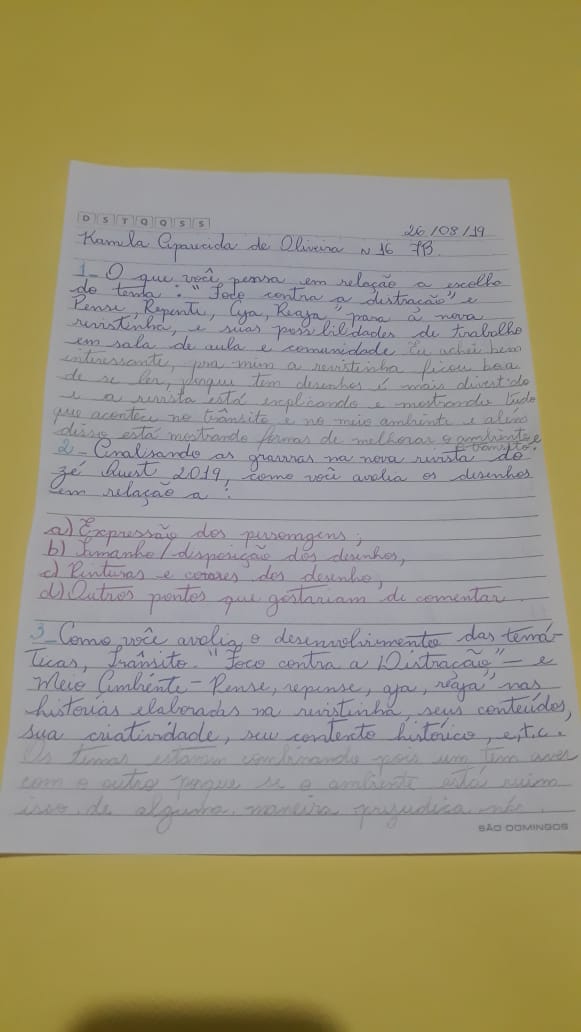 D S T Q Q S S
26/08/19
Kamila Aparecida de Oliveira n 16 7B
1- O que você pensa em relação a escolha
do tema: "Foco contra a distração" e
Pense, Repente, Aja, Reaja" para a nova
revistinha, e suas possibilidades de trabalho
em sala de aula e comunidade Eu achei bem
interessante, pra mim a revistinha ficou boa
de se ler, porque tem desenhos é mais divertido
e a revista está explicando e mostrando tudo
que acontece no trânsito e no meio ambiente e além
disso está mostrando formas de melhorar o ambiente e
o trânsito.
2- Analisando as gravuras na nova revista do
zé 2019, como você avalia os desenhos
em relação a:
a) Expressão dos personagens;
b) Tamanho/disposição dos desenhos,
c) Pinturas e dos desenho,
d) Outros pontos que gostariam de comentar.
3- Como você avalia o desenvolvimento das temá-
ticas, Trânsito. "Foco contra a Distração" - e
Meio Ambiente - Pense, repense, aja, reaja" nas
histórias elaboradas na revistinha, seus conteúdos,
sua criatividade, seu contento histórico, e,t,c.
Os temas estavam combinando pois um tem aver
com o outro porque se o ambiente está ruim
isso de alguma maneira prejudica
SÃO DOMINGOS